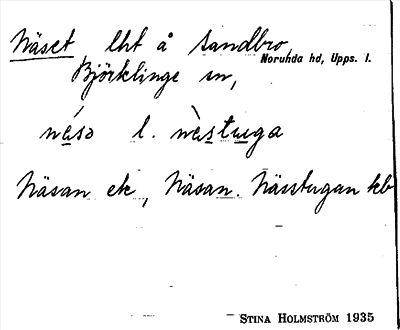 Näset, lht å Sandbro,
Norunda hd, Upps. l.
Björklinge sn,
néso l. nèstuga
Näsan ek, Näsan. Nässtugan kb
STINA HOLMSTRÖM 1935